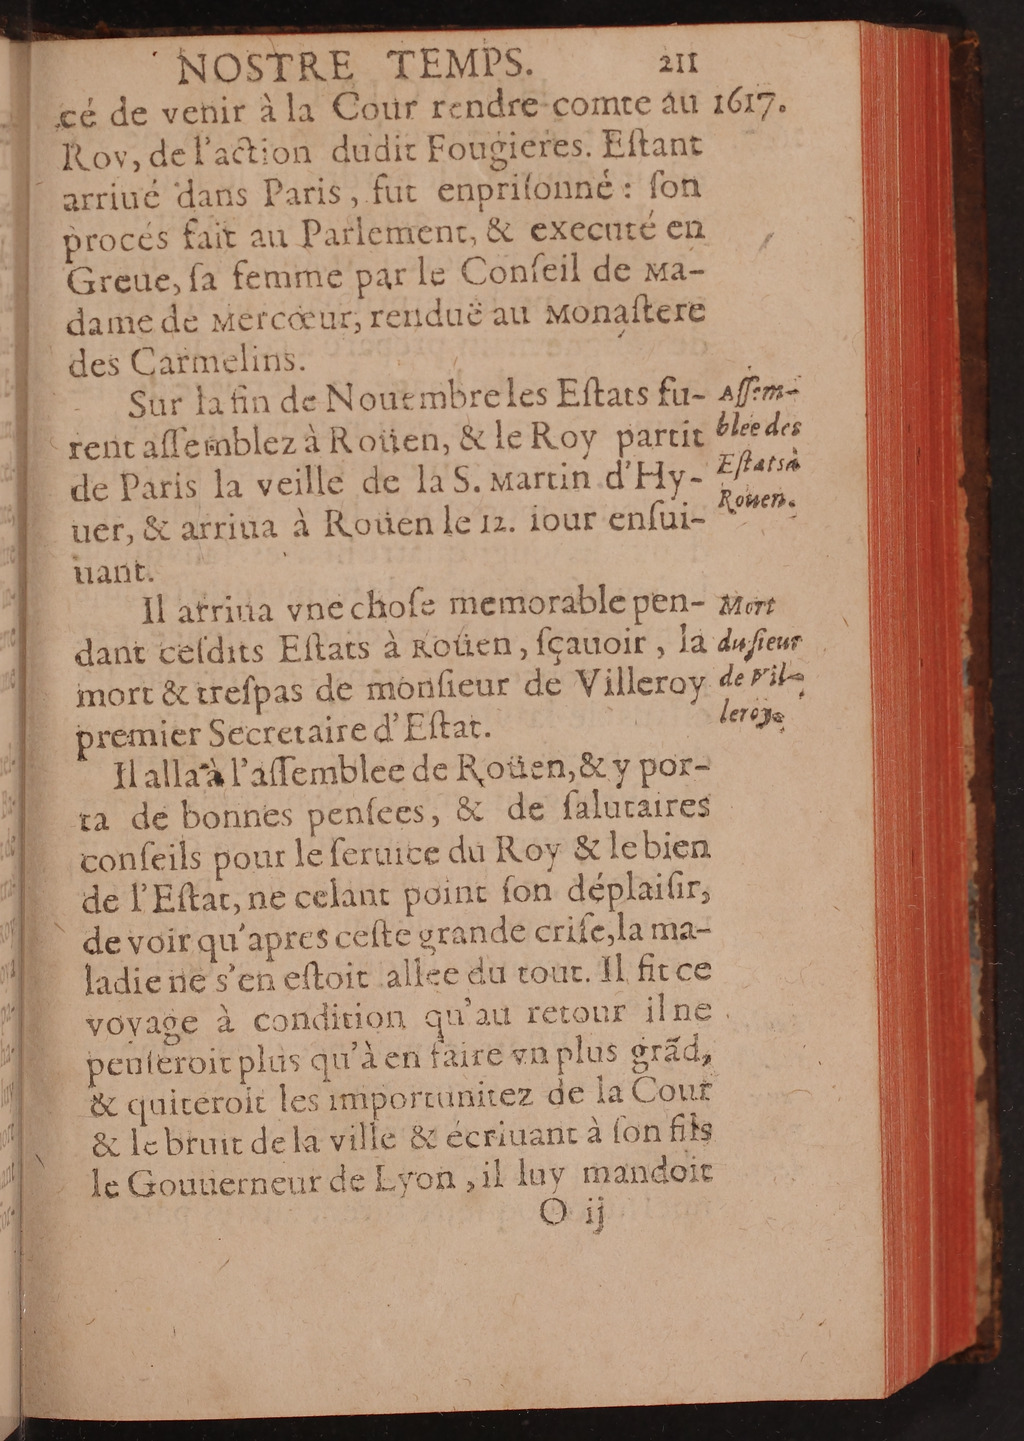 NOSTRE TEMPS. 211
cé de venir à la Cour rendre comte au 1617.
Roy, de l'action dudit Fougieres. Eſtant
arriué dans Paris, fut enpriſonné : ſon
procés fait au Parlement, & executé en
Greue, ſa femme par le Conſeil de Ma-
dame de Mercœur, renduë au Monaſtere
des Carmelins.
Sur la fin de Nouembre les Eſtats fu-
rent aſſemblez à Roüen, & le Roy partit
de Paris la veille de la S. Martin d'Hy-
uer, & arriua à Roüen le 12. iour enſui-
uant.
Aſſem-
blee des
Eſtats à
Rouen.
Il arriua vne choſe memorable pen-
dant ceſdits Eſtats à Roüen, ſçauoir, la
mort & treſpas de monſieur de Villeroy
premier Secretaire d'Eſtat.
Mort
du ſieur
de Vil-
leroye
Il alla à l'aſſemblee de Roüen, & y por-
ta de bonnes penſees, & de ſalutaires
conſeils pour le ſeruice du Roy & le bien
de l'Eſtat, ne celant point ſon déplaiſir,
de voir qu'apres ceſte grande criſe, la ma-
ladie ne s'en eſtoit allee du tout. Il fit ce
voyage à condition qu'au retour il ne
penſeroit plus qu'à en faire vn plus grãd,
& quiteroit les importunitez de la Cour
& le bruit de la ville & écriuant à ſon fils
le Gouuerneur de Lyon, il luy mandoit
O ij